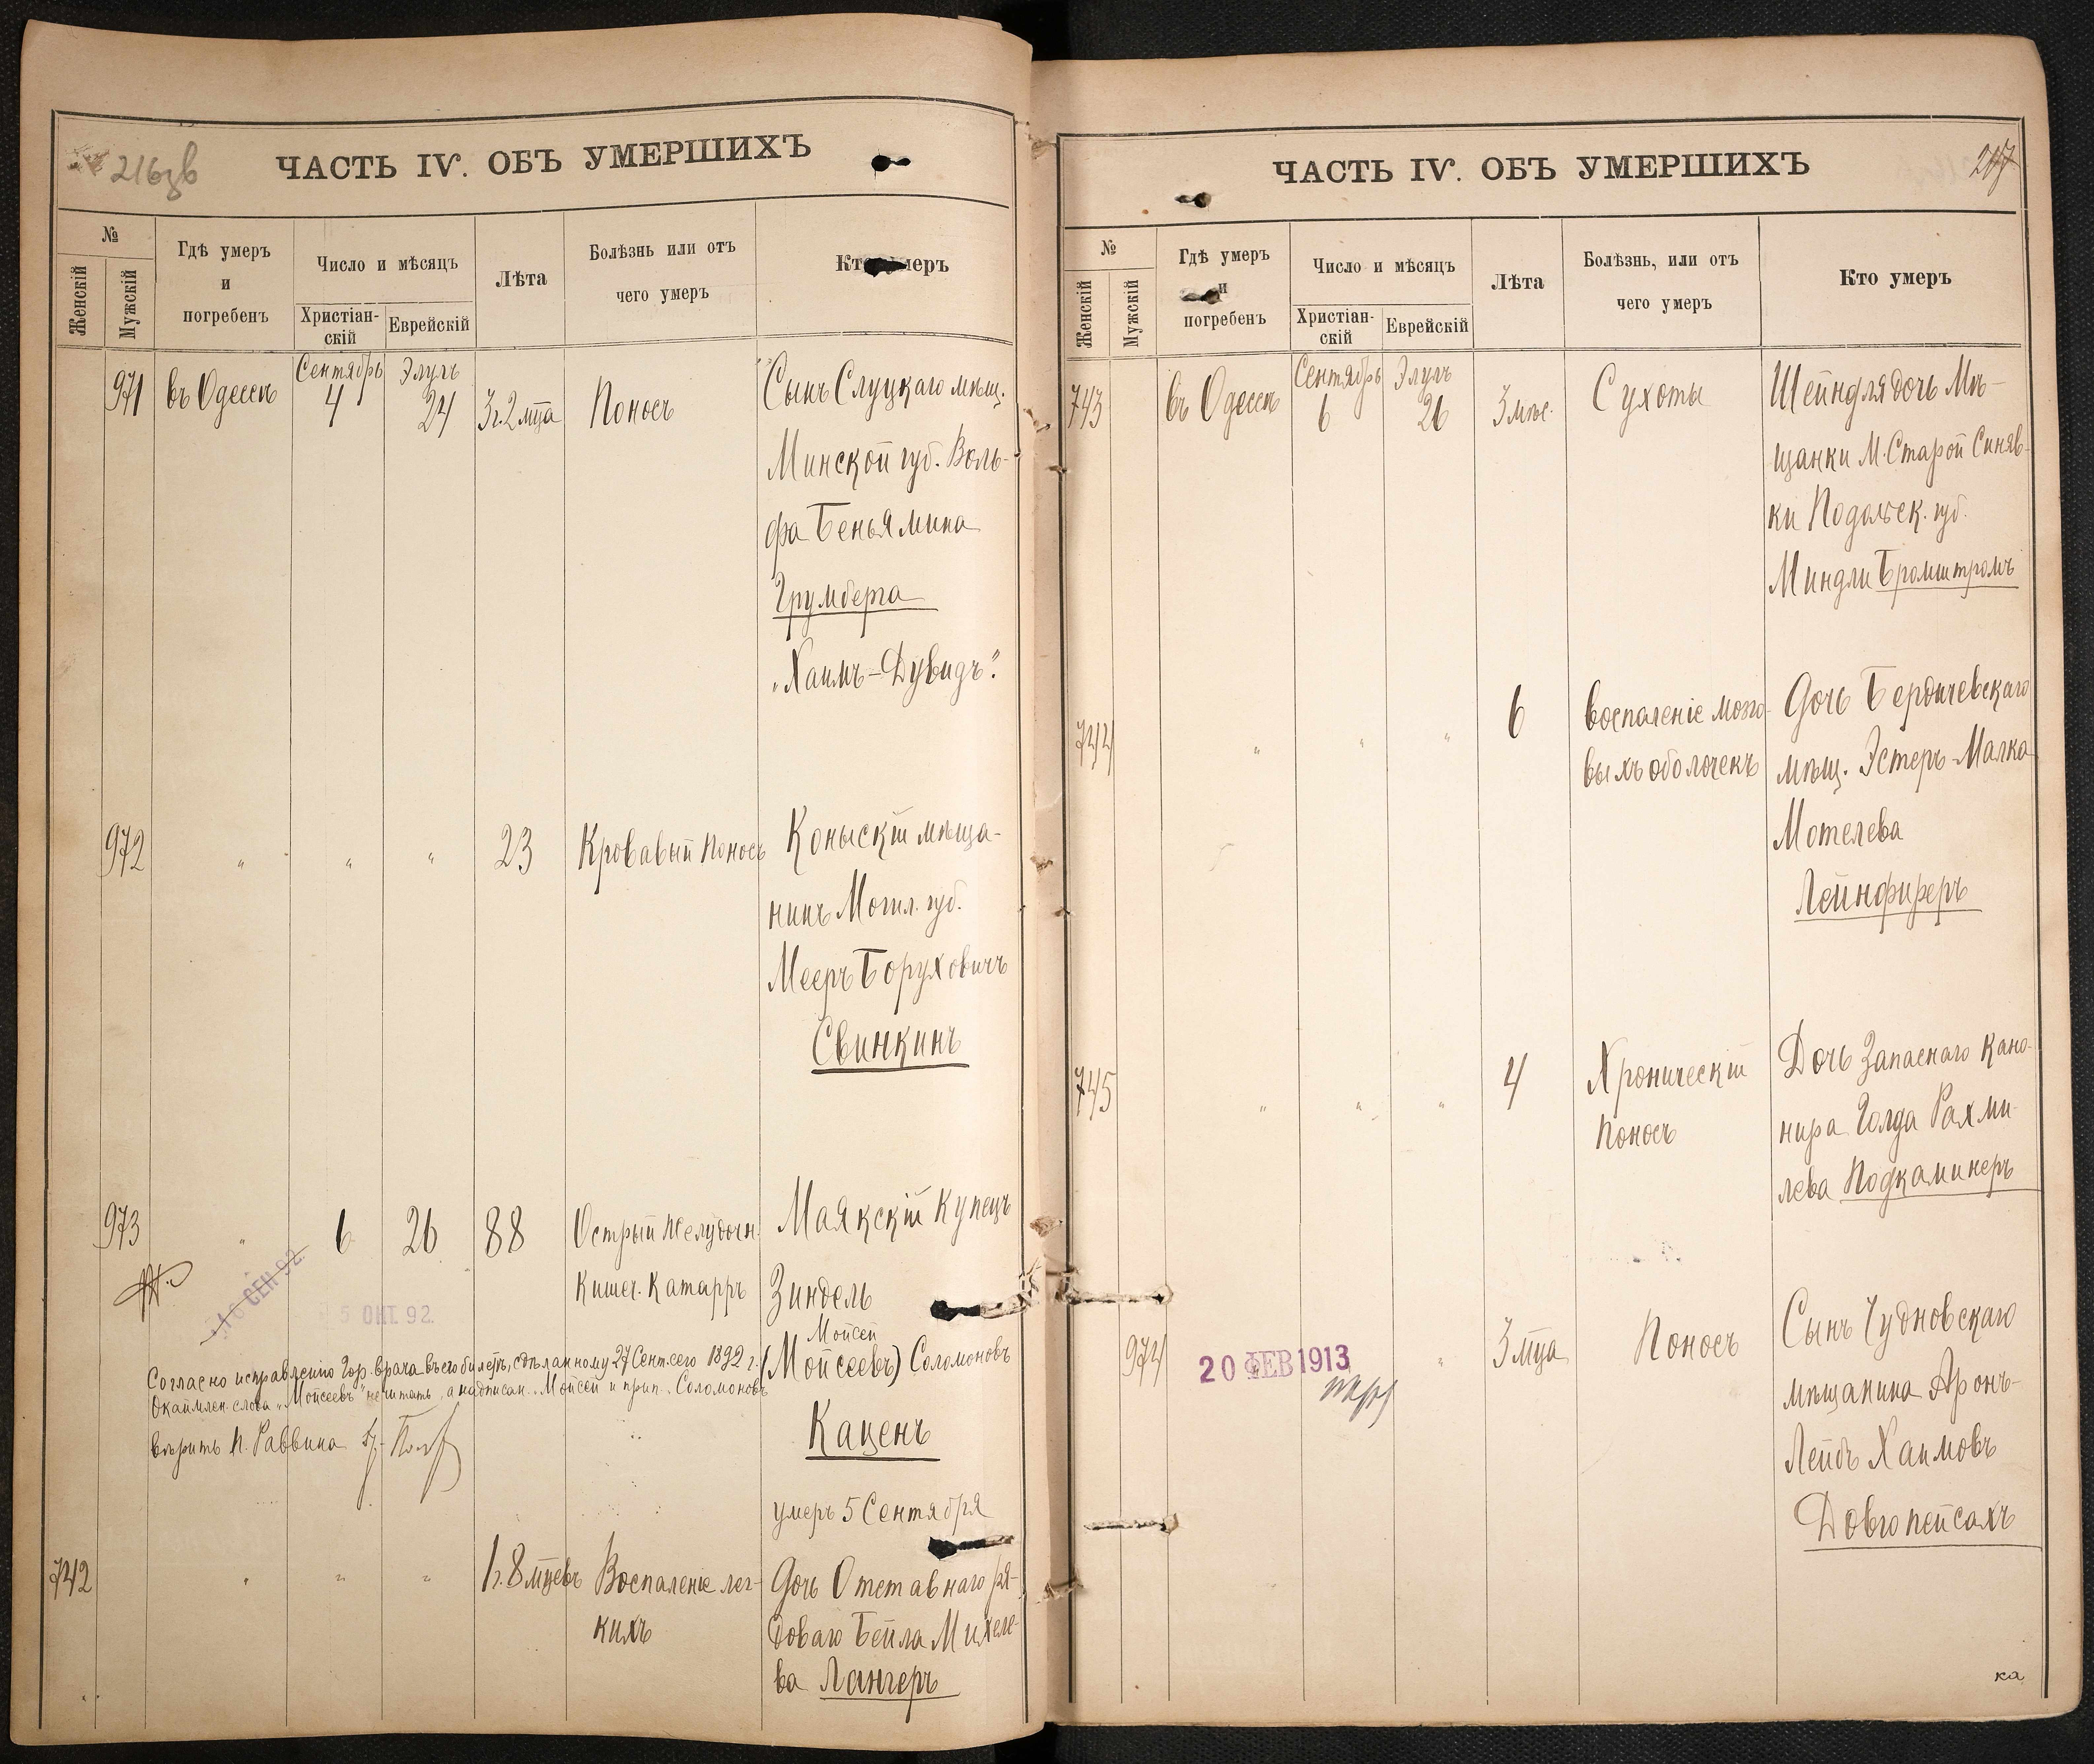 216зв
ЧАСТЬ IV. ОБЪ УМЕРШИХЪ
№
Женскій
Мужскій
Гдѣ умеръ
и
погребенъ
Число и мѣсяцъ
Христіан-
скій
Еврейскій
Лѣта
Болѣзнь или отъ
чего умеръ
Кто умеръ
971 въ Одессѣ Сентябрь 4 Элулъ 24 3г.2мца Поносъ Сынъ Слуцкаго мѣщ.
Минской губ. Воль-
фа Беньямина
Грумберга
„Хаимъ-Дувидъ".
972 " " " 23 Кровавый поносъ Коныскій мѣща-
нинъ Могил. губ.
Мееръ Боруховичъ
Свинкинъ
973 " 6 26 88 Острый желудочн. Маякскій купецъ
Кишеч. Катарръ Зиндель
16 СЕН 92
5 ОКТ. 92.
Мойсей
(Мойсеевъ) Соломоновъ
Каценъ
умеръ 5 Сентября
Согласно исправленію Гор. врача въ его билетѣ, сдѣланному 27 Сент. сего 1892 г.
Окаймлен. слова „Мойсеевъ" не читать, а надписан. „Мойсей и прип. „Соломоновъ
вѣрить П. Раввина
742 " " " 1г.8мцевъ Воспаленіе лег- Дочь Отставнаго ря-
кихъ доваго Бейла Михеле-
ва Лангеръ
ЧАСТЬ IV. ОБЪ УМЕРШИХЪ
217
№
Женскій
Мужскій
Гдѣ умеръ
и
погребенъ
Число и мѣсяцъ
Христіан-
скій
Еврейскій
Лѣта
Болѣзнь, или отъ
чего умеръ
Кто умеръ
743 въ Одессѣ Сентябрь 6 Элулъ 26 3 мѣс. Сухоты Шейндля дочь Мѣ-
щанки М. Старой Синяв-
ки Подольск. губ.
Миндли Бромштромъ
744 " " " 6 воспаленіе мозго- Дочь Бердичевскаго
выхъ оболочекъ мѣщ. Эстеръ-Малка
Мотелева
Лейнфиреръ
745 " " " 4 Хроническій Дочь Запаснаго Кано-
поносъ нира Голда Рахми-
лева Подкаминеръ
974 20 ФЕВ 1913 " 3 мца Поносъ Сынъ Чудновскаго
мѣщанина Аронъ-
Лейбъ Хаимовъ
Довгопейсахъ
ка